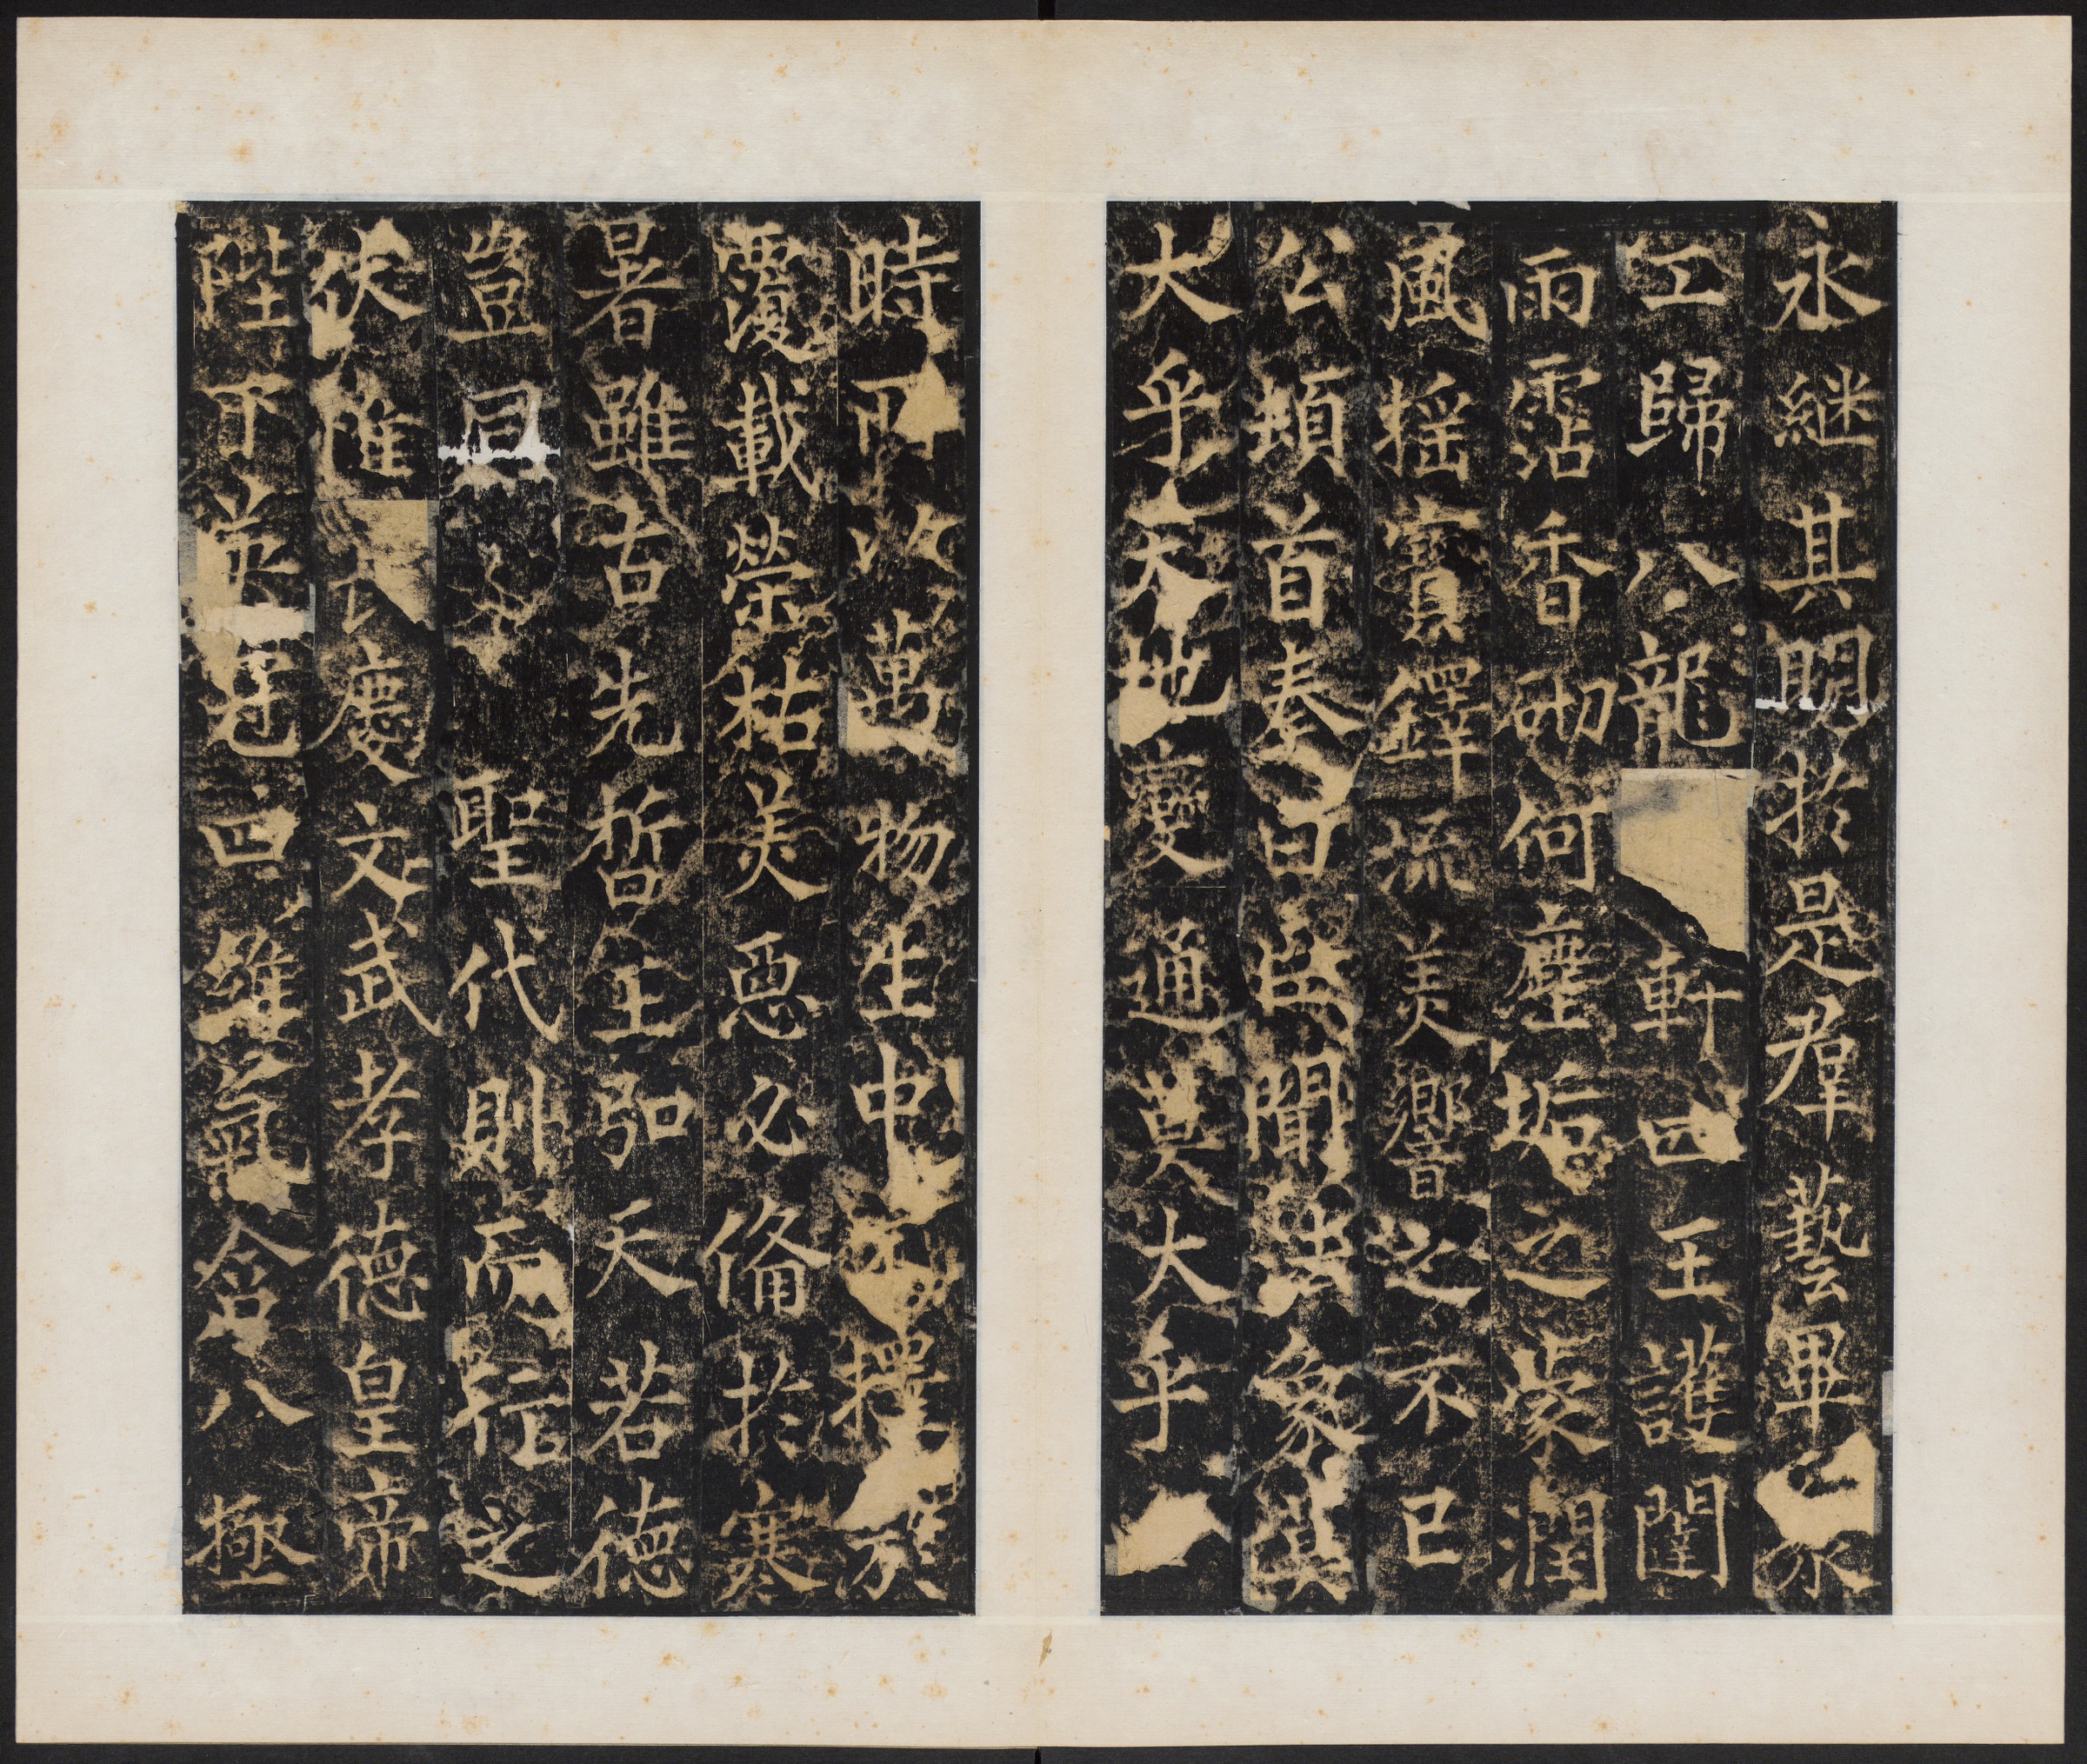 永継其明於是群藝畢公永
工歸八龍軒四王護闥
雨霑香砌何塵垢之染潤
風揺寶鐸流美響之不已
公頓首奏曰臣聞出象溟
大乎天地變通莫大乎
時萬物生中擇族
覆載榮枯美惡必偹於寒
暑雖古先哲王弘天若德
豈同聖代則而行之
伏惟慶文武孝德皇帝
陛下並冠四維氣含八極